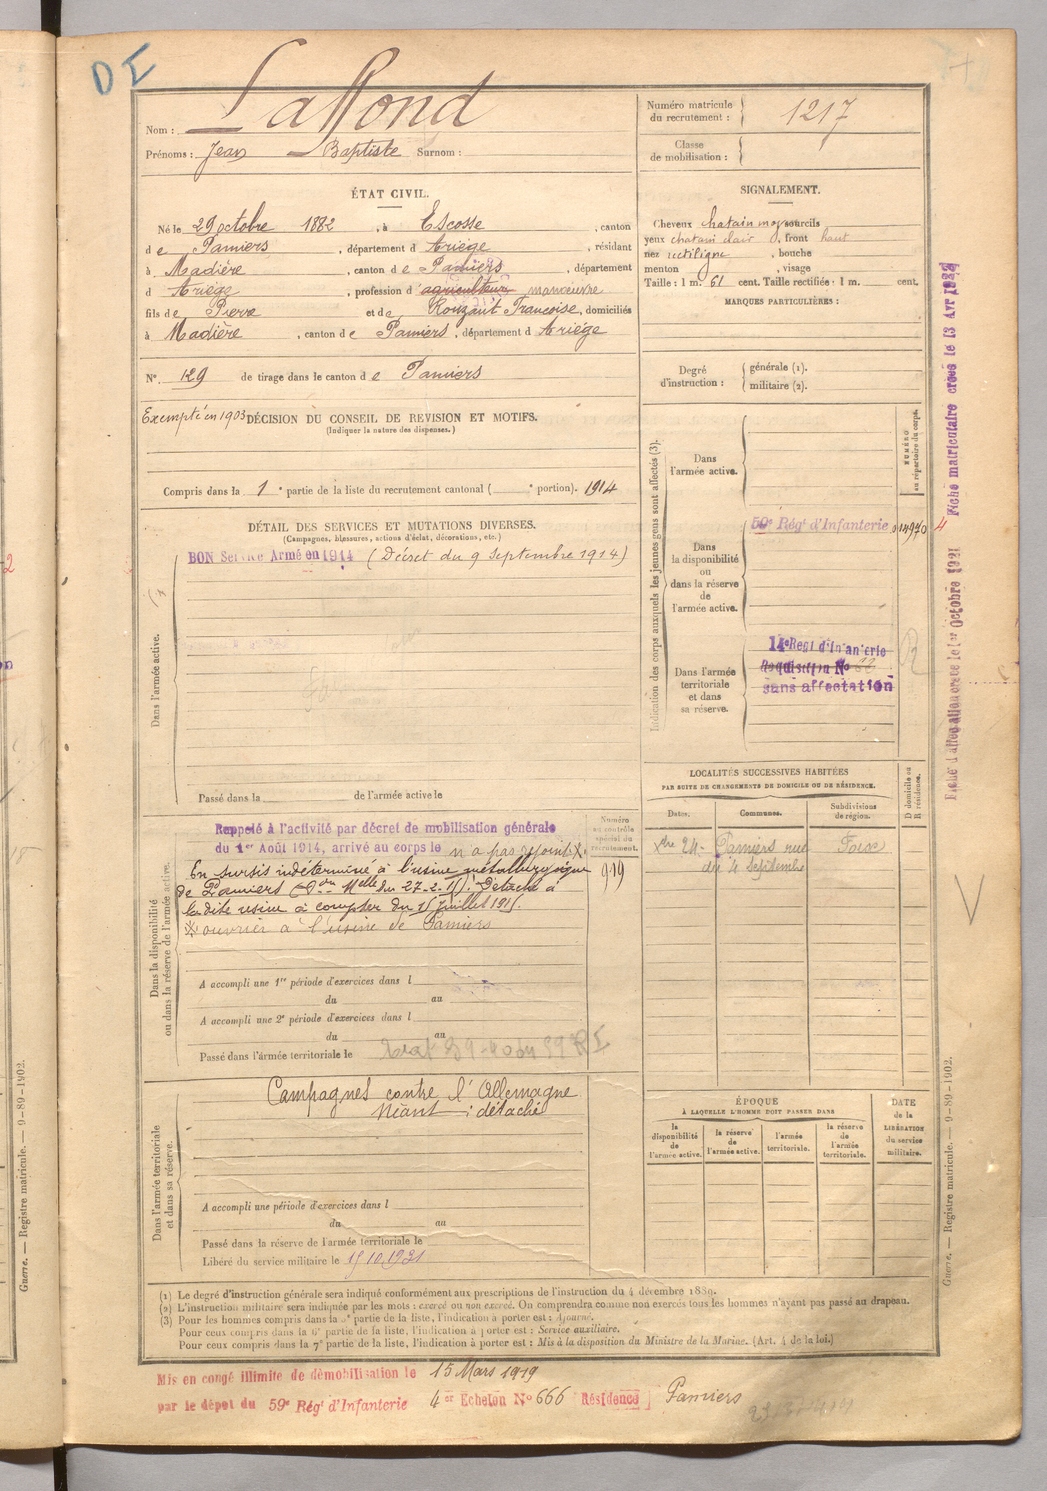 DE
Nom : Laffond
Prénoms : Jean Baptiste Surnom :
Numéro matricule du recrutement : 1217
Classe de mobilisation :
ÉTAT CIVIL.
Né le 29 octobre 1882, à Escosse, canton
d e Pamiers, département d Ariège, résidant
à Madière, canton d e Pamiers, département
d Ariège, profession d agriculteur manœuvre
fils de Pierre et de Rouzaut Françoise, domiciliés
à Madière, canton d e Pamiers, département d Ariége
N° 129 de tirage dans le canton d e Pamiers
SIGNALEMENT.
Cheveux chatain moy sourcils
yeux chatain clair, front haut
nez rectiligne, bouche
menton, visage
Taille : 1 m. 61 cent. Taille rectifiée : 1 m. cent.
MARQUES PARTICULIÈRES :
Degré d'instruction : générale (1).
militaire (2).
Exempté en 1903 DÉCISION DU CONSEIL DE REVISION ET MOTIFS.
(Indiquer la nature des dispenses.)
Compris dans la 1e partie de la liste du recrutement cantonal ( e portion). 1914
DÉTAIL DES SERVICES ET MUTATIONS DIVERSES.
(Campagnes, blessures, actions d'éclat, décorations, etc.)
BON Service Armé en 1914 (Décret du 9 Septembre 1914)
Dans l'armée active.
Passé dans la de l'armée active le
Indication des corps auxquels les jeunes gens sont affectés (3).
NUMÉRO au répertoire du corps.
Dans l'armée active.
Dans la disponibilité ou dans la réserve de l'armée active.
59e Régt d'Infanterie 014970
Dans l'armée territoriale et dans sa réserve.
14e Regt d'Infanterie
Requisition No 22
sans affectation
Fiche matriculaire créée le 13 Avr
Octobre 1921
LOCALITÉS SUCCESSIVES HABITÉES
PAR SUITE DE CHANGEMENTS DE DOMICILE OU DE RÉSIDENCE.
Dates. Communes. Subdivisions de région. D domicile ou R résidence.
Xbre 24- Pamiers rue Foix
du 4 Septembre
Dans la disponibilité ou dans la réserve de l'armée active.
Numéro au contrôle spécial du recrutement.
Rappelé à l'activité par décret de mobilisation générale
du 1er Août 1914, arrivé au corps le n'a pas rejoint X.
En sursis indéterminé à l'usine métallurgique
de Pamiers du 27-2-15. Détaché à
ladite usine à compter du 15 Juillet 1915.
X ouvrier à l'usine de Pamiers
919
A accompli une 1re période d'exercices dans l
du au
A accompli une 2e période d'exercices dans l
du au
Passé dans l'armée territoriale le
Dans l'armée territoriale et dans sa réserve.
Campagnes contre l'Allemagne
Néant : détaché
A accompli une période d'exercices dans l
du au
Passé dans la réserve de l'armée territoriale le
Libéré du service militaire le 15.10.1931
ÉPOQUE
À LAQUELLE L'HOMME DOIT PASSER DANS
la disponibilité de l'armée active. la réserve de l'armée active. l'armée territoriale. la réserve de l'armée territoriale.
DATE de la LIBÉRATION du service militaire.
(1) Le degré d'instruction générale sera indiqué conformément aux prescriptions de l'instruction du 4 décembre 1889.
(2) L'instruction militaire sera indiquée par les mots : exercé ou non exercé. On comprendra comme non exercés tous les hommes n'ayant pas passé au drapeau.
(3) Pour les hommes compris dans la 5e partie de la liste, l'indication à porter est : Ajourné.
Pour ceux compris dans la 6e partie de la liste, l'indication à porter est : Service auxiliaire.
Pour ceux compris dans la 7e partie de la liste, l'indication à porter est : Mis à la disposition du Ministre de la Marine. (Art. 4 de la loi.)
Guerre. — Registre matricule. — 9-89-1902.
Guerre. — Registre matricule. — 9-89-1902.
Mis en congé illimité de démobilisation le 15 Mars 1919
par le dépôt du 59e Régt d'Infanterie 4er Echelon No 666 Résidence Pamiers